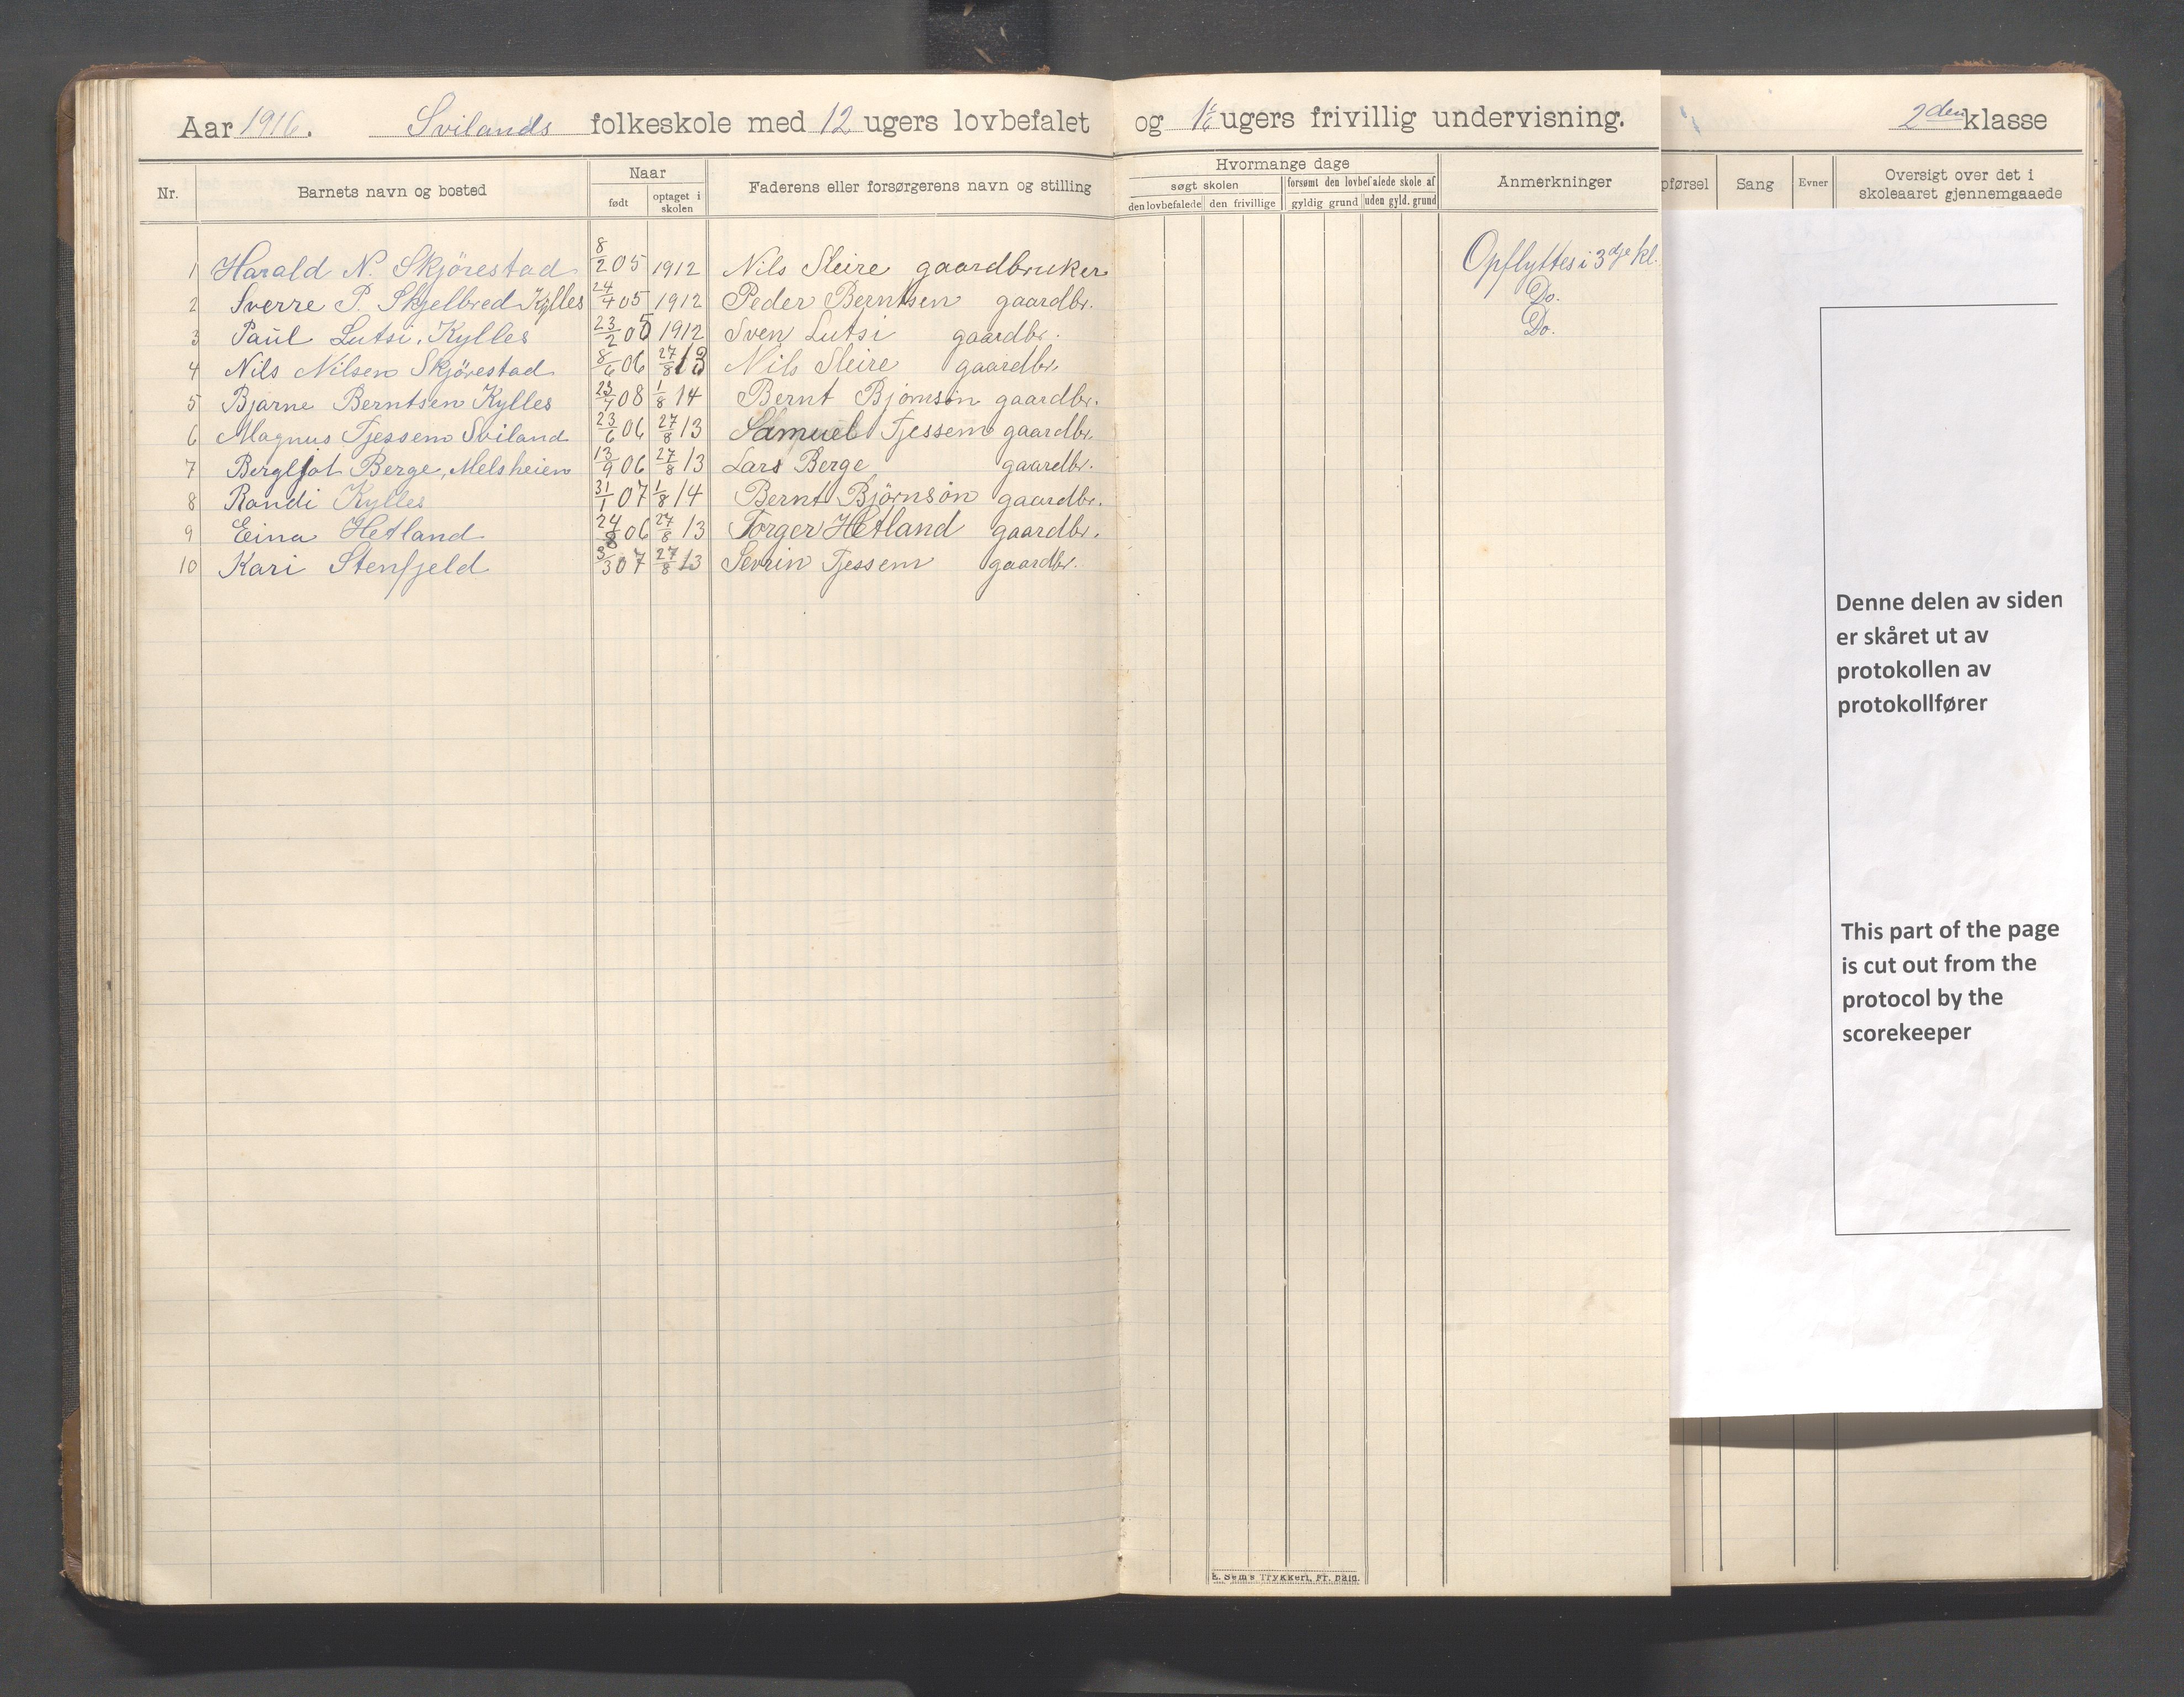 Aar 1916. Svilands folkeskole med 12 ugers lovbefalet og ugers frivillig undervisning. 2den klasse
Nr. Barnets navn og bosted Naar Faderens eller forsørgerens navn og stilling Hvormange dage Anmerkninger pførsel Sang Evner Oversigt over det i skoleaaret gjennemgaaede
født optaget i skolen søgt skolen forsømt den lovbefalede skole af
den lovbefalede den frivillige gyldig grund uden gyld. grund
1 Harald N. Skjörestad 8/2 05 1912 Nils Sleire gaardbruker Opflyttes i 3dje kl.
2 Sverre P. Skjelbred Kylles 24/4 05 1912 Peder Berntsen gaardbr. Do.
3 Paul Lutsi, Kylles 23/2 05 1912 Sven Lutsi gaardbr. Do.
4 Nils Nilsen Skjörestad 8/6 06 27/8 13 Nils Sleire gaardbr.
5 Bjarne Berntsen Kylles 08 1/8 14 Bernt Björnson gaardbr.
6 Magnus Tjessem Sviland 23/6 06 27/8 13 Samuel Tjessem gaardbr.
7 Bergljot Berge, Melsheien 13/9 06 27/8 13 Lars Berge gaardbr.
8 Randi Kylles 31/1 07 1/8 14 Bernt Björnson gaardbr.
9 Eina Hetland 24/8 06 27/8 13 Torger Hetland gaardbr.
10 Kari Stenfjeld 3/3 07 27/8 13 Sevrin Tjessem gaardbr.
Denne delen av siden
er skåret ut av
protokollen av
protokollfører
This part of the page
is cut out from the
protocol by the
scorekeeper
E. Sem's Trykkeri, Fr. hald.